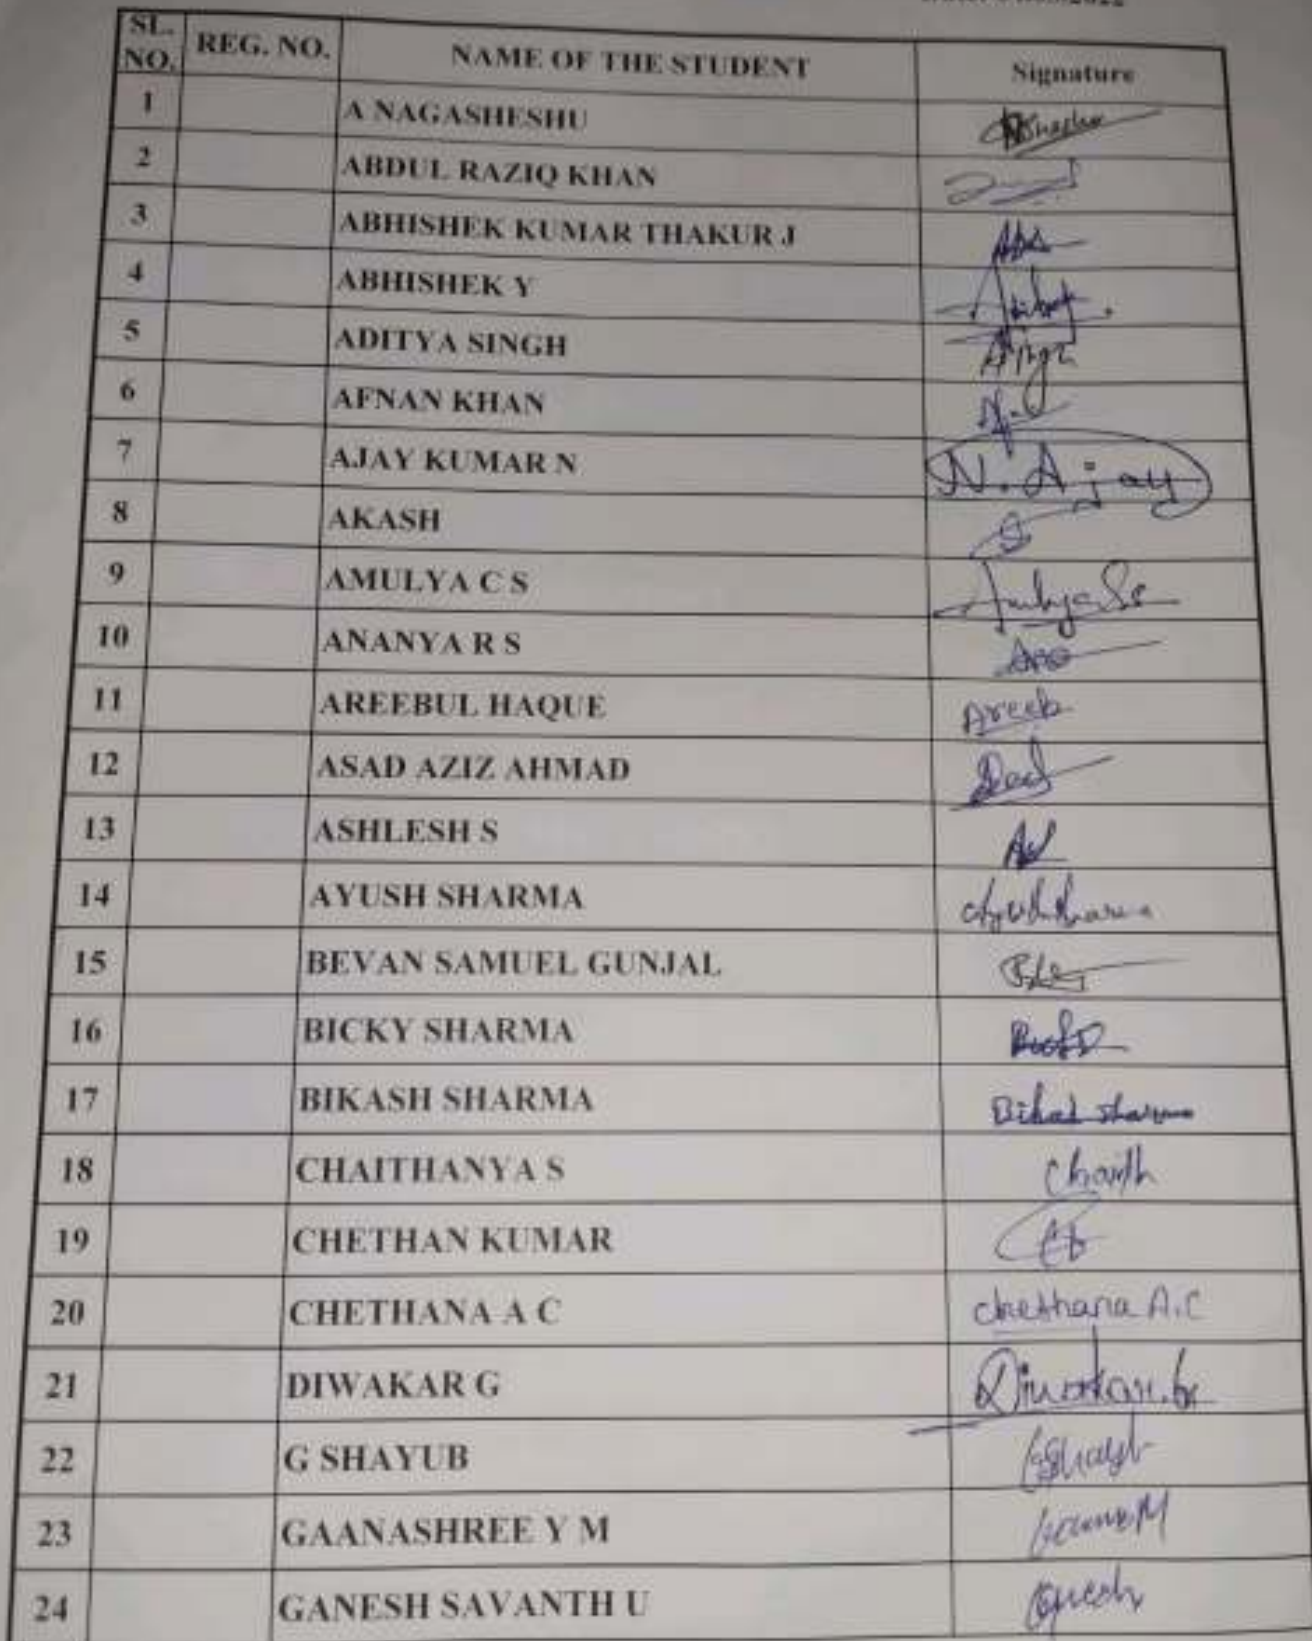 SL. NO. REG. NO. NAME OF THE STUDENT Signature
1 A NAGASHESHU
2 ABDUL RAZIQ KHAN
3 ABHISHEK KUMAR THAKUR J
4 ABHISHEK Y
5 ADITYA SINGH
6 AFNAN KHAN
7 AJAY KUMAR N N. Ajay
8 AKASH
9 AMULYA C S
10 ANANYA R S
11 AREEBUL HAQUE Areeb
12 ASAD AZIZ AHMAD
13 ASHLESH S
14 AYUSH SHARMA
15 BEVAN SAMUEL GUNJAL
16 BICKY SHARMA
17 BIKASH SHARMA
18 CHAITHANYA S Chaith
19 CHETHAN KUMAR
20 CHETHANA A C Chethana A.C
21 DIWAKAR G Diwakar.G
22 G SHAYUB
23 GAANASHREE Y M
24 GANESH SAVANTH U